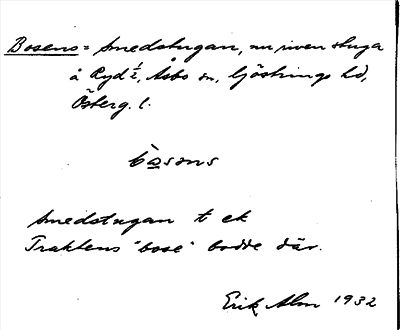 Bosens = Smedstugan, nu riven stuga
å Ryd 1/2, Åsbo sn, Göstrings hd,
Österg. l.
bosens
Smedstugan t ek
Traktens "bose" bodde där.
Erik Alm 1932